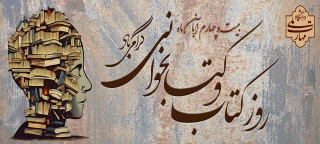 بیست و چهارم آبان ماه
روز کتاب و کتابخوانی
گرامی باد
دانشگاه
مهارت